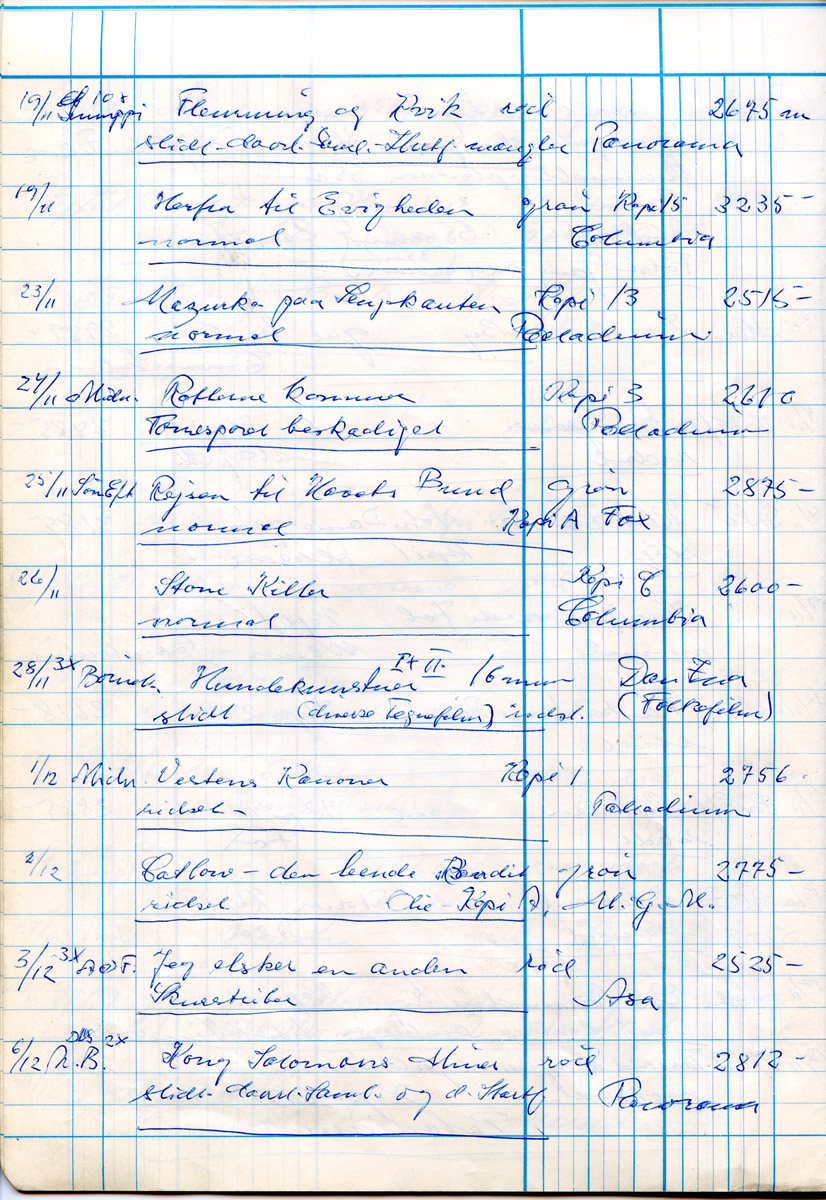 19/11 10x Flemming og Kvik rød 2675 m
slidt - daarl. Saml. - mangler Panorama
19/11 Herfra til Evigheden grøn Kopi 15 3235 -
normal Columbia
23/11 Mazurka paa Sengekanten Kopi 13 2515 -
normal Palladium
24/11 Midn. Rotterne kommer Kopi 3 2610
Tonesporet beskadiget Palladium
25/11 Søn Eft Rejsen til Havets Bund grøn 2875 -
normal Kopi A Fox
26/11 Stone Killer Kopi C 2600 -
normal Columbia
28/11 3x Børneb. Hundekunstner I + II 16 mm Dan Ina
slidt (diverse Tegnefilm) indsl. (Folkefilm)
1/12 Midn. Vestens Kanoner Kopi 1 2756 -
ridset - Palladium
2/12 Catlow - den leende Bandit grøn 2775 -
ridset Olie - Kopi A, M.G.M.
3/12 3x Jeg elsker en anden rød 2525 -
Skuestriber Asa
6/12 2x N.B. Kong Salomons Miner rød 2812 -
slidt - daarl. Saml. og d. Panorama